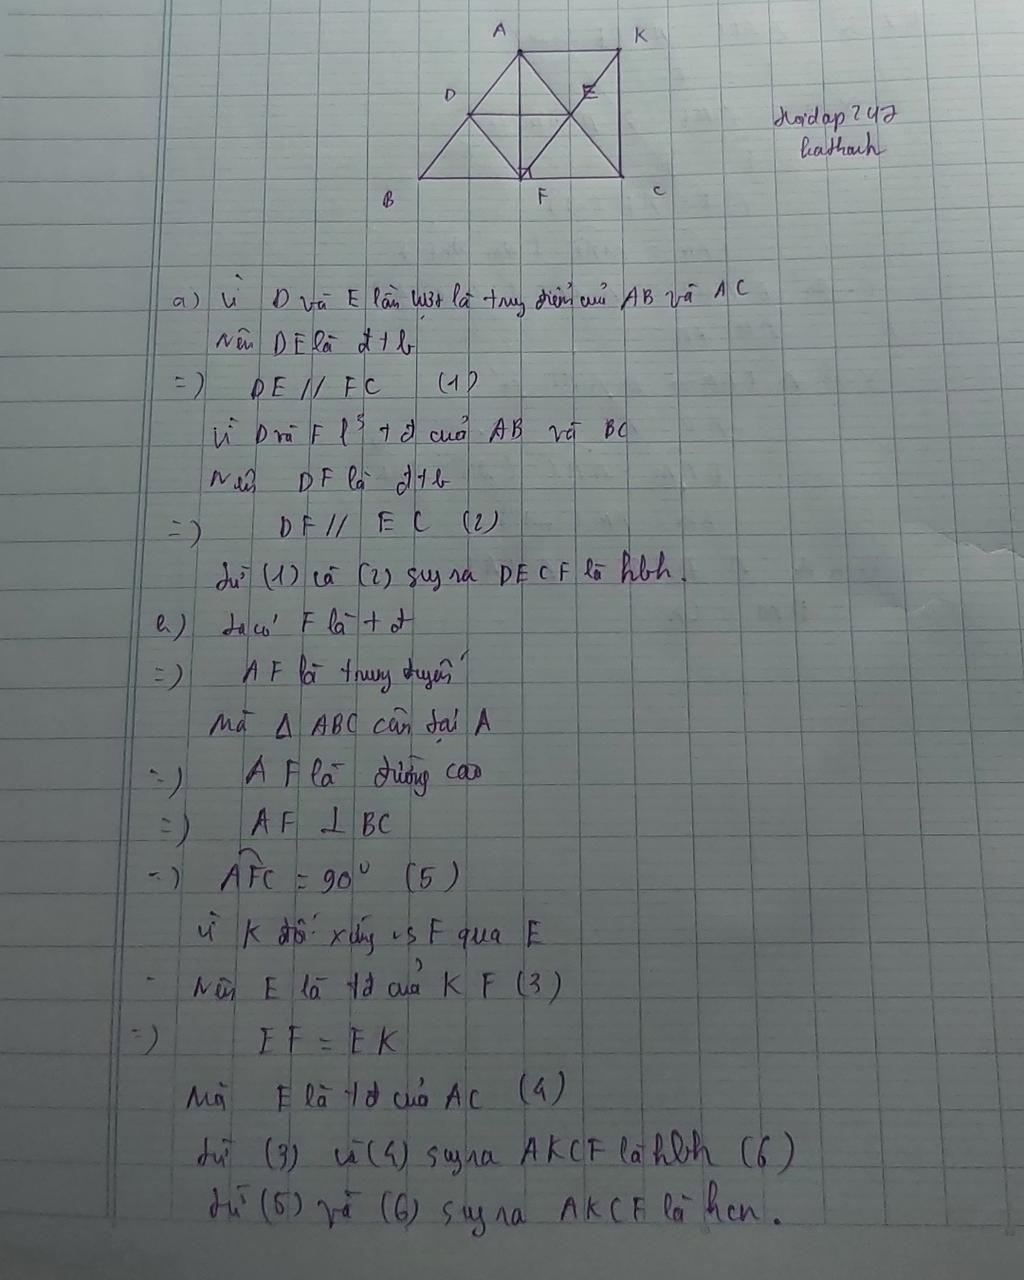 A
K
D
E
B
F
C
Hoidap247
hathanh
a) Vì D và E lần lượt là trung điểm của AB và AC
Nên DE là đtb
=) DE // FC (1)
Vì D và F l² + đ của AB và BC
Nên DF là đtb
=) DF // EC (2)
Từ (1) và (2) suy ra DECF là hbh.
b) Ta có F là tđ
=) AF là trung tuyến
Mà Δ ABC cân tại A
=) AF là đường cao
=) AF ⊥ BC
=) AFC = 90⁰ (5)
Vì K đối xứng vs F qua E
Nên E là tđ của KF (3)
=) EF = EK
Mà E là tđ của AC (4)
Từ (3) và (4) suy ra AKCF là hbh (6)
Từ (5) và (6) suy ra AKCF là hcn.